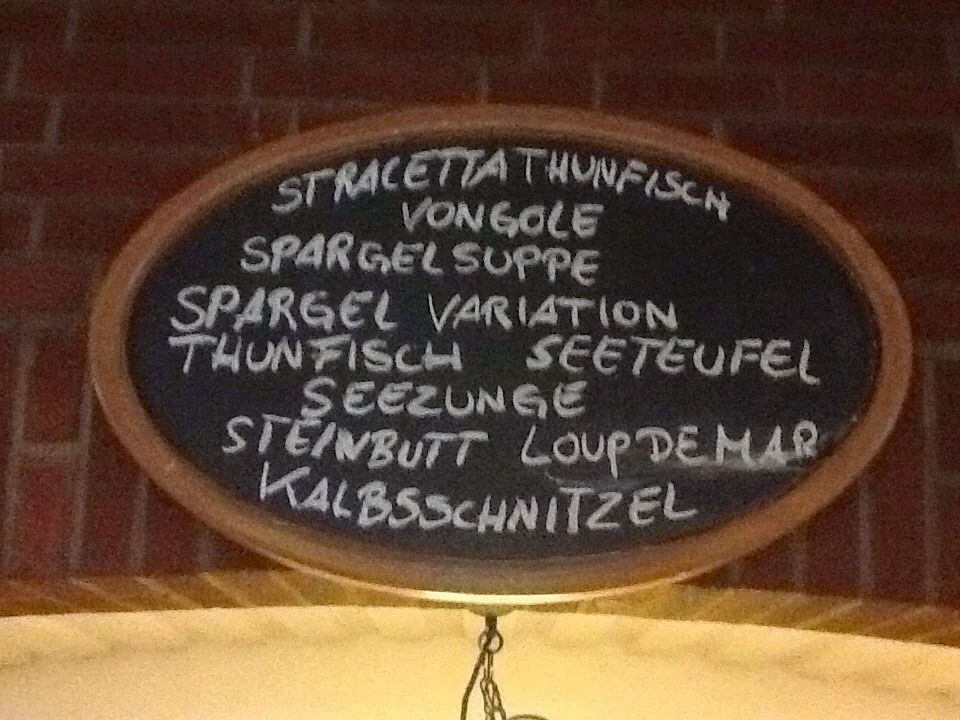 STRACETTA THUNFISCH
VONGOLE
SPARGELSUPPE
SPARGEL VARIATION
THUNFISCH SEETEUFEL
SEEZUNGE
STEINBUTT LOUP DE MAR
KALBSSCHNITZEL